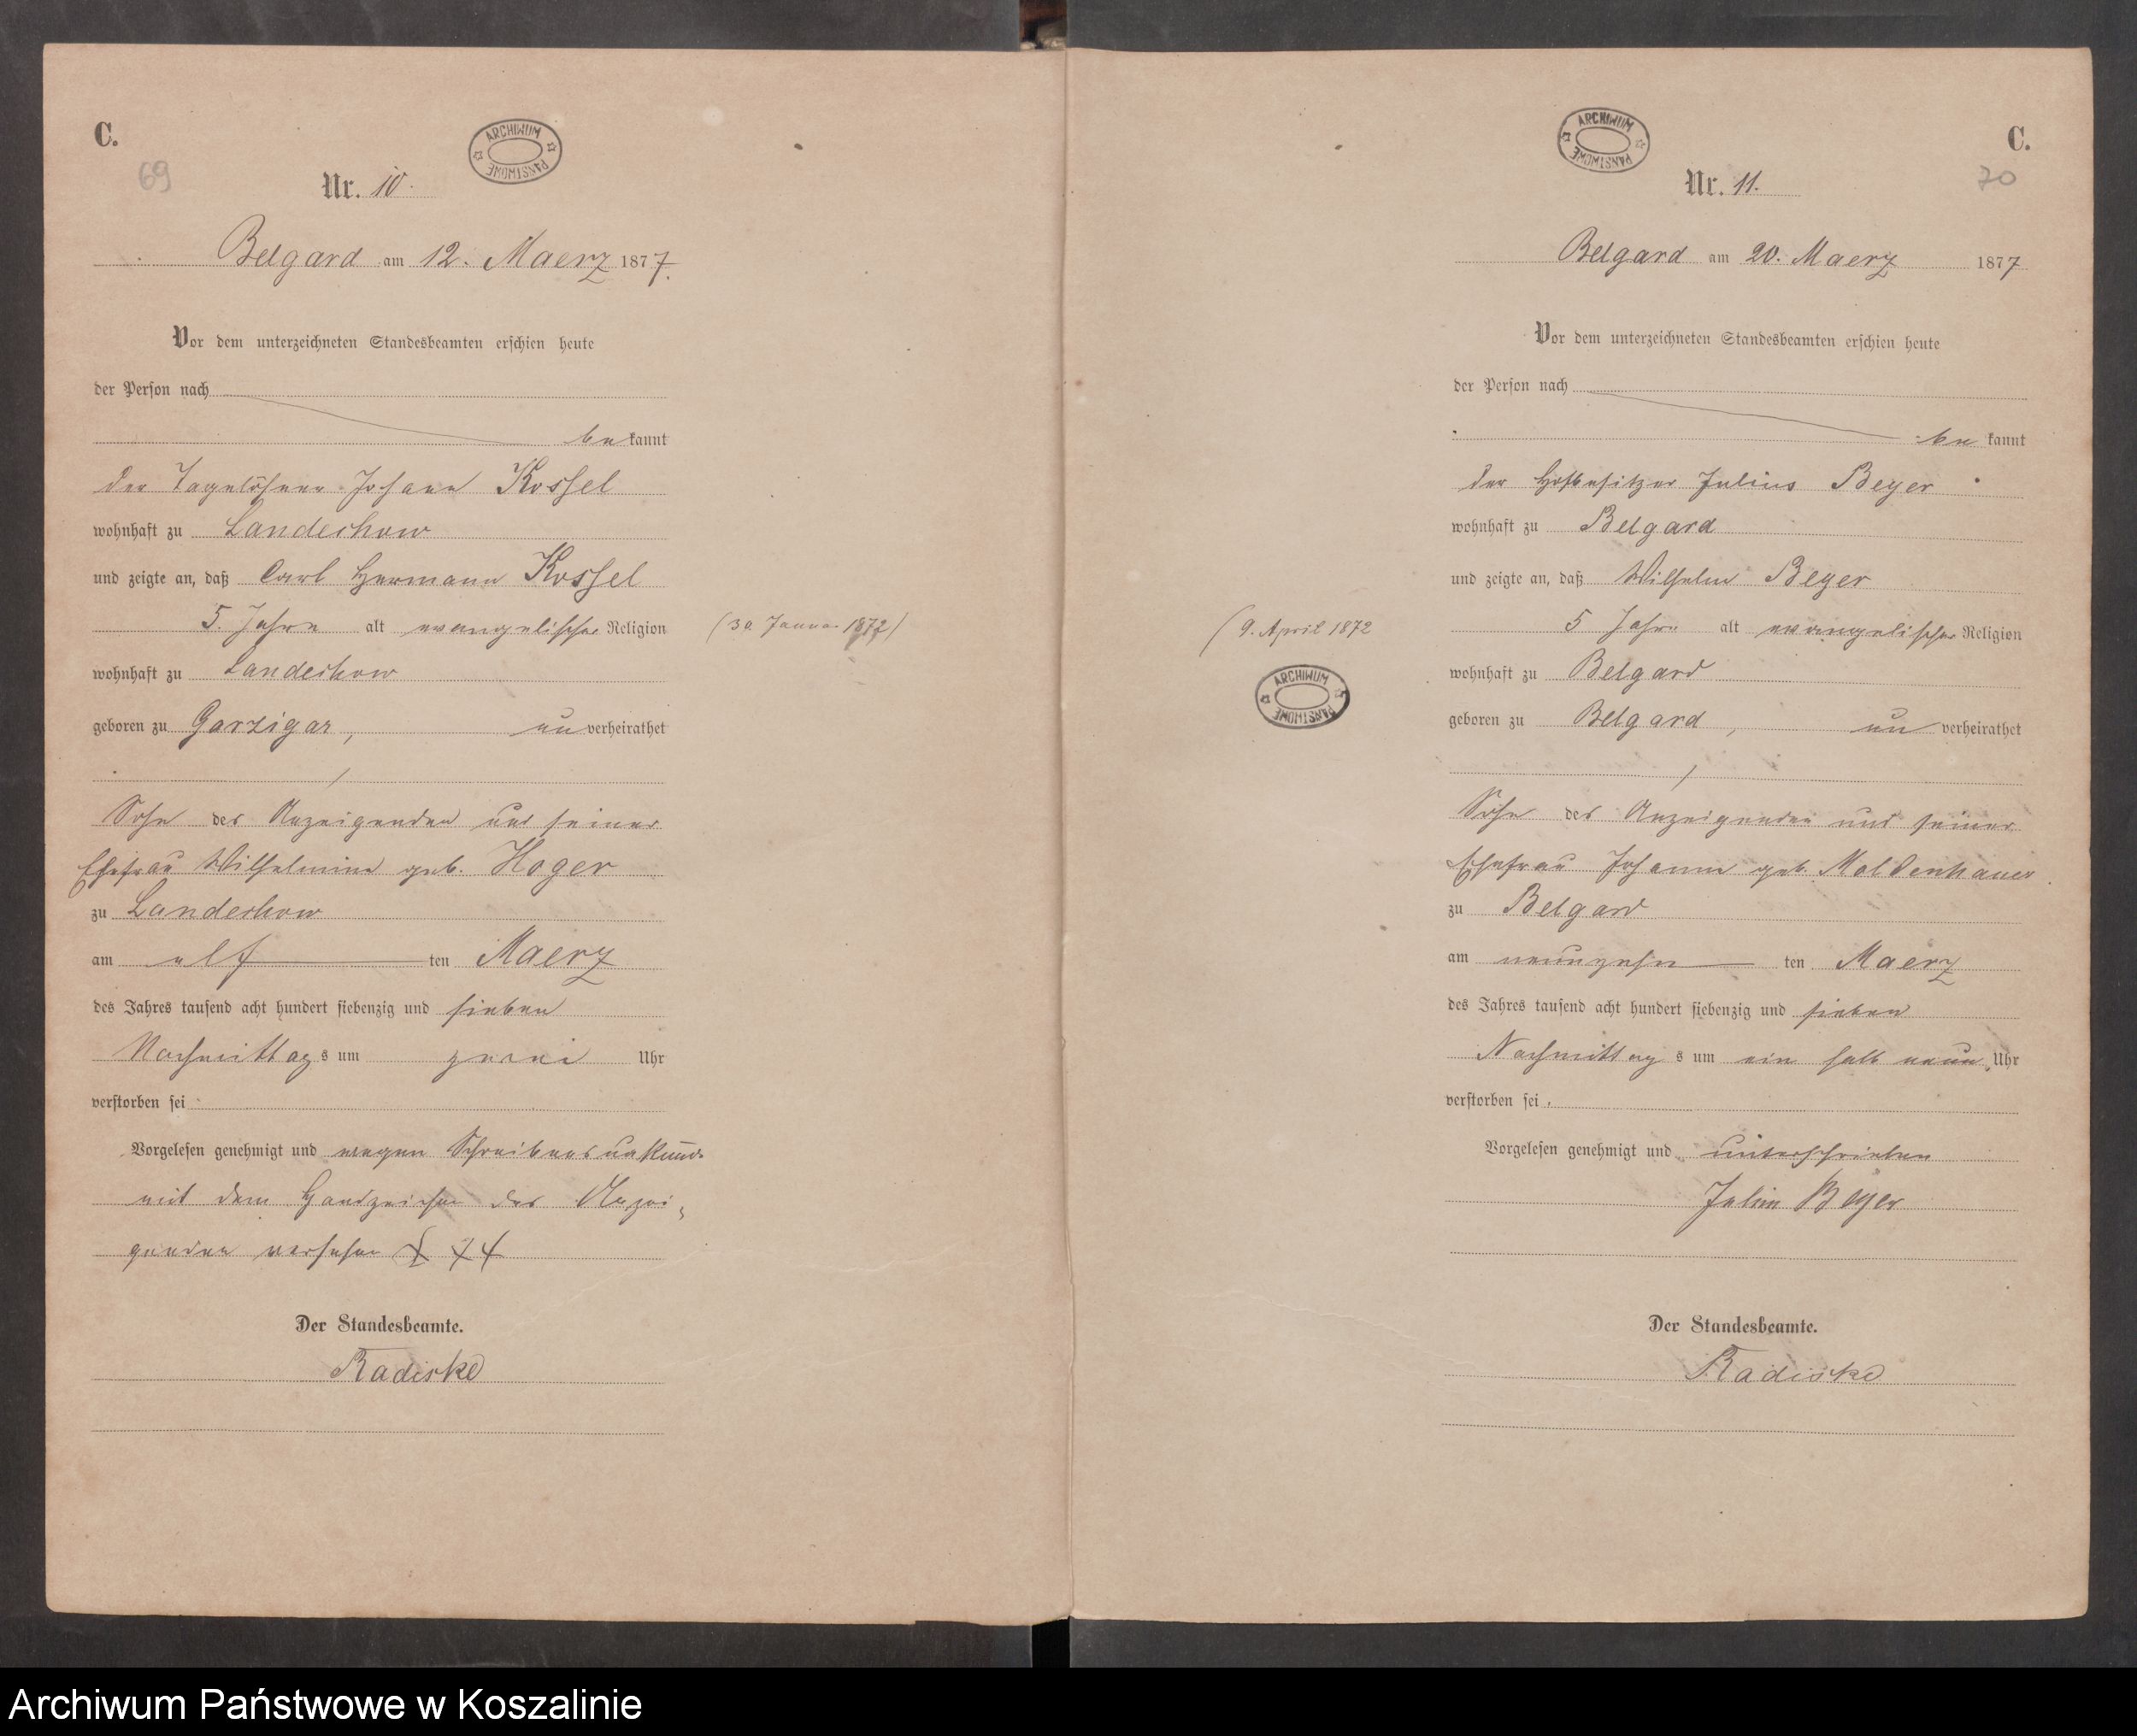 C.
69
ARCHIWUM PAŃSTWOWE
Nr. 10.
Belgard am 12. Maerz 1877.
Vor dem unterzeichneten Standesbeamten erschien heute
der Person nach
be kannt
der Tagelöhner Johann Kossel
wohnhaft zu Landechow
und zeigte an, daß Carl Hermann Kossel
5. Jahre alt evangelischer Religion (30. Januar 1872)
wohnhaft zu Landechow
geboren zu Garzigar, un verheirathet
Sohn des Anzeigenden und seiner
Ehefrau Wilhelmine geb. Hoger
zu Landechow
am elf ten Maerz
des Jahres tausend acht hundert siebenzig und sieben
Nachmittag s um zwei Uhr
verstorben sei
Vorgelesen genehmigt und wegen Schreibensunkunde
mit dem Handzeichen des Anzei-
genden versehen XXX
Der Standesbeamte.
Radiske
C.
70
ARCHIWUM PAŃSTWOWE
Nr. 11.
Belgard am 20. Maerz 1877
Vor dem unterzeichneten Standesbeamten erschien heute
der Person nach
be kannt
der Hofbesitzer Julius Beyer
wohnhaft zu Belgard
und zeigte an, daß Wilhelm Beyer
(9. April 1872 5 Jahre alt evangelischer Religion
ARCHIWUM PAŃSTWOWE
wohnhaft zu Belgard
geboren zu Belgard, un verheirathet
Sohn des Anzeigenden und seiner
Ehefrau Johanne geb. Moldenhauer
zu Belgard
am neunzehn ten Maerz
des Jahres tausend acht hundert siebenzig und sieben
Nachmittag s um ein halb neun Uhr
verstorben sei.
Vorgelesen genehmigt und unterschrieben
Julius Beyer
Der Standesbeamte.
Radiske
Archiwum Państwowe w Koszalinie